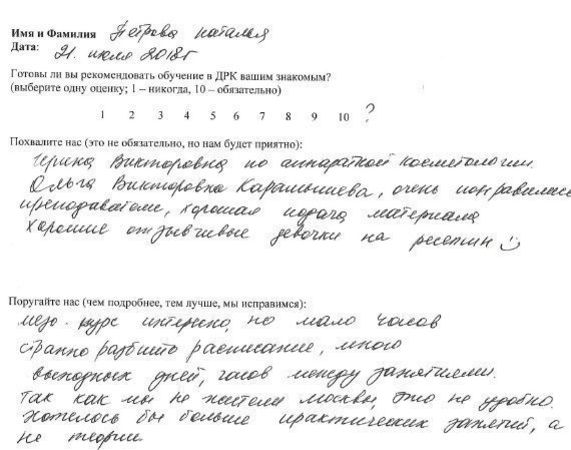 Имя и Фамилия Петрова Наталья
Дата: 21. июля 2018г
Готовы ли вы рекомендовать обучение в ДРК вашим знакомым?
(выберите одну оценку; 1 – никогда, 10 – обязательно)
1 2 3 4 5 6 7 8 9 10 ?
Похвалите нас (это не обязательно, но нам будет приятно):
Ирина Викторовна по аппаратной косметологии.
Ольга Викторовна Карамышева, очень понравились
преподаватели, хорошая подача материала
хорошие отзывчивые девочки на ресепшн
Поругайте нас (чем подробнее, тем лучше, мы исправимся):
мезо-курс интересно, но мало часов
странно разбито расписание, много
выходных дней, часов между занятиями.
Так как мы не жители Москвы, это не удобно.
Хотелось бы больше практических занятий, а
не теории